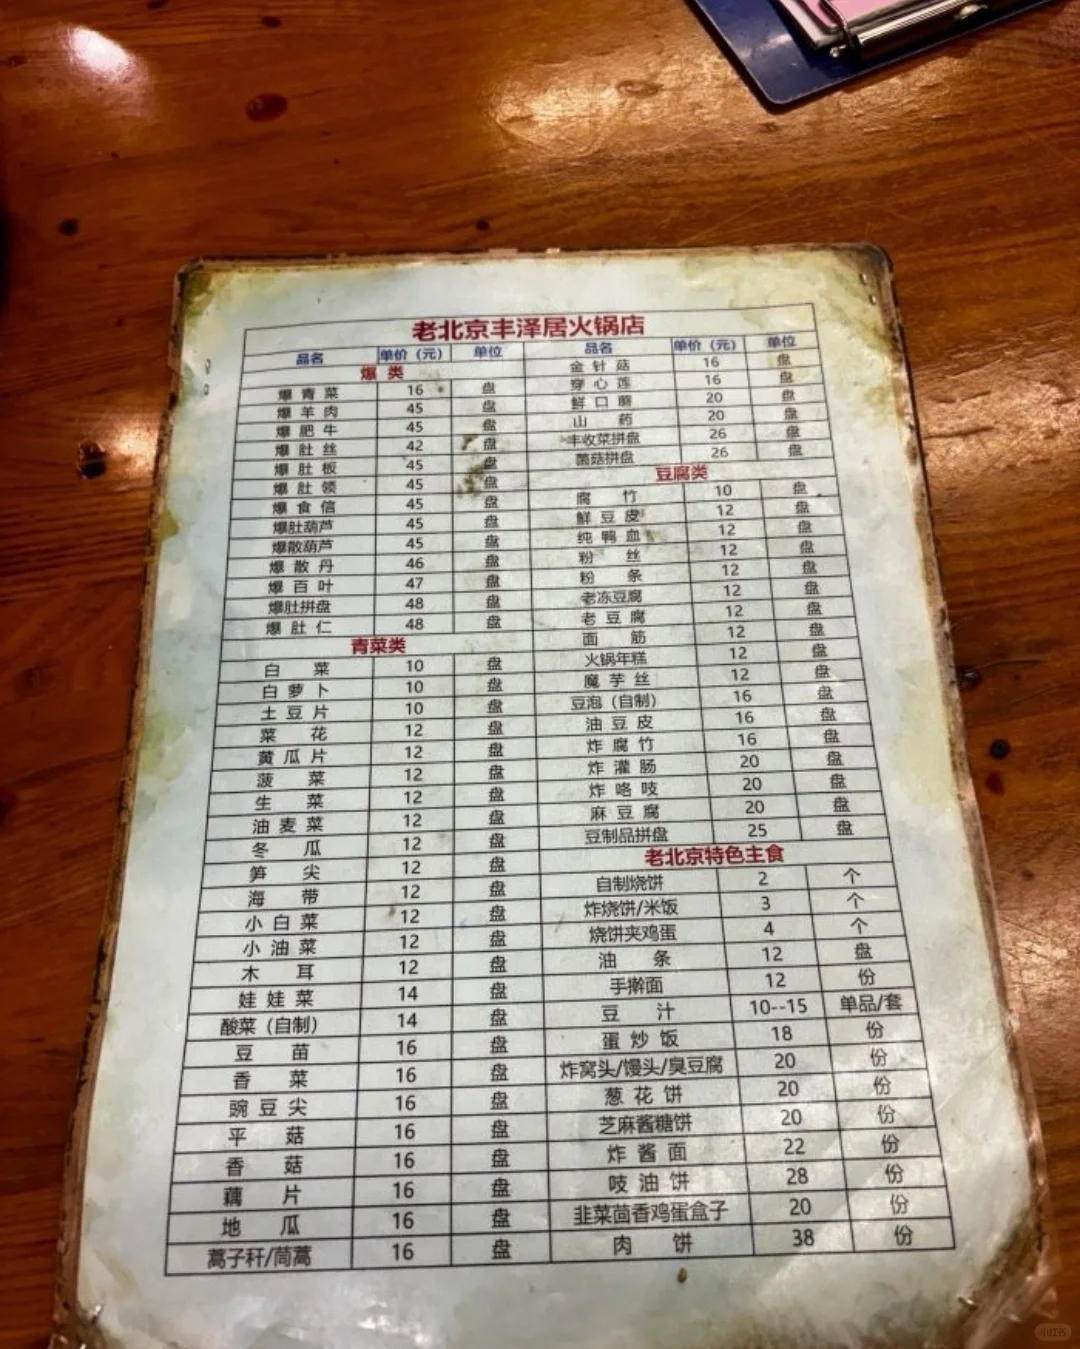 老北京丰泽居火锅店
品名 单价（元） 单位
爆 类
爆青菜 16 盘
爆羊肉 45 盘
爆肥牛 45 盘
爆肚丝 42 盘
爆肚板 45 盘
爆肚领 45 盘
爆食信 45 盘
爆肚葫芦 45 盘
爆散葫芦 45 盘
爆散丹 46 盘
爆百叶 47 盘
爆肚拼盘 48 盘
爆肚仁 48 盘
青菜类
白菜 10 盘
白萝卜 10 盘
土豆片 10 盘
菜花 12 盘
黄瓜片 12 盘
菠菜 12 盘
生菜 12 盘
油麦菜 12 盘
冬瓜 12 盘
笋尖 12 盘
海带 12 盘
小白菜 12 盘
小油菜 12 盘
木耳 12 盘
娃娃菜 14 盘
酸菜（自制） 14 盘
豆苗 16 盘
香菜 16 盘
豌豆尖 16 盘
平菇 16 盘
香菇 16 盘
藕片 16 盘
地瓜 16 盘
蒿子秆/茼蒿 16 盘
品名 单价（元） 单位
金针菇 16 盘
穿心莲 16 盘
鲜口蘑 20 盘
山药 20 盘
丰收菜拼盘 26 盘
菌菇拼盘 26 盘
豆腐类
腐竹 10 盘
鲜豆皮 12 盘
纯鸭血 12 盘
粉丝 12 盘
粉条 12 盘
老冻豆腐 12 盘
老豆腐 12 盘
面筋 12 盘
火锅年糕 12 盘
魔芋丝 12 盘
豆泡（自制） 16 盘
油豆皮 16 盘
炸腐竹 16 盘
炸灌肠 20 盘
炸咯吱 20 盘
麻豆腐 20 盘
豆制品拼盘 25 盘
老北京特色主食
自制烧饼 2 个
炸烧饼/米饭 3 个
烧饼夹鸡蛋 4 个
油条 12 盘
手擀面 12 份
豆汁 10--15 单品/套
蛋炒饭 18 份
炸窝头/馒头/臭豆腐 20 份
葱花饼 20 份
芝麻酱糖饼 20 份
炸酱面 22 份
吱油饼 28 份
韭菜茴香鸡蛋盒子 20 份
肉饼 38 份
小红书